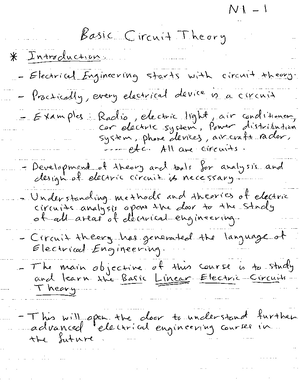 N1 - 1
Basic Circuit Theory
* Introduction:
- Electrical Engineering starts with circuit theory.
- Practically, every electrical device is a circuit
- Examples: Radio, electric light, air conditioner,
car electric system, Power distribution
system, phone devices, aircraft radar,
---- etc. All are circuits.
- Development of theory and tools for analysis and
design of electric circuit is necessary.
- Understanding methods and theories of electric
circuits analysis opens the door to the study
of all areas of electrical engineering.
- Circuit theory has generated the language of
Electrical Engineering.
- The main objective of this course is to study
and learn the Basic Linear Electric Circuits
Theory
- This will open the door to understand further
advanced electrical engineering courses in
the future.